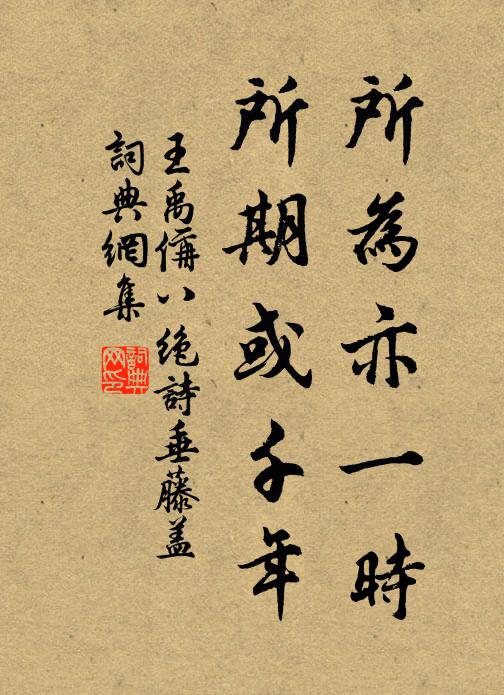 所為亦一時
所期或千年
王禹偁八絶詩垂藤盖
詞典網集
詞典网印